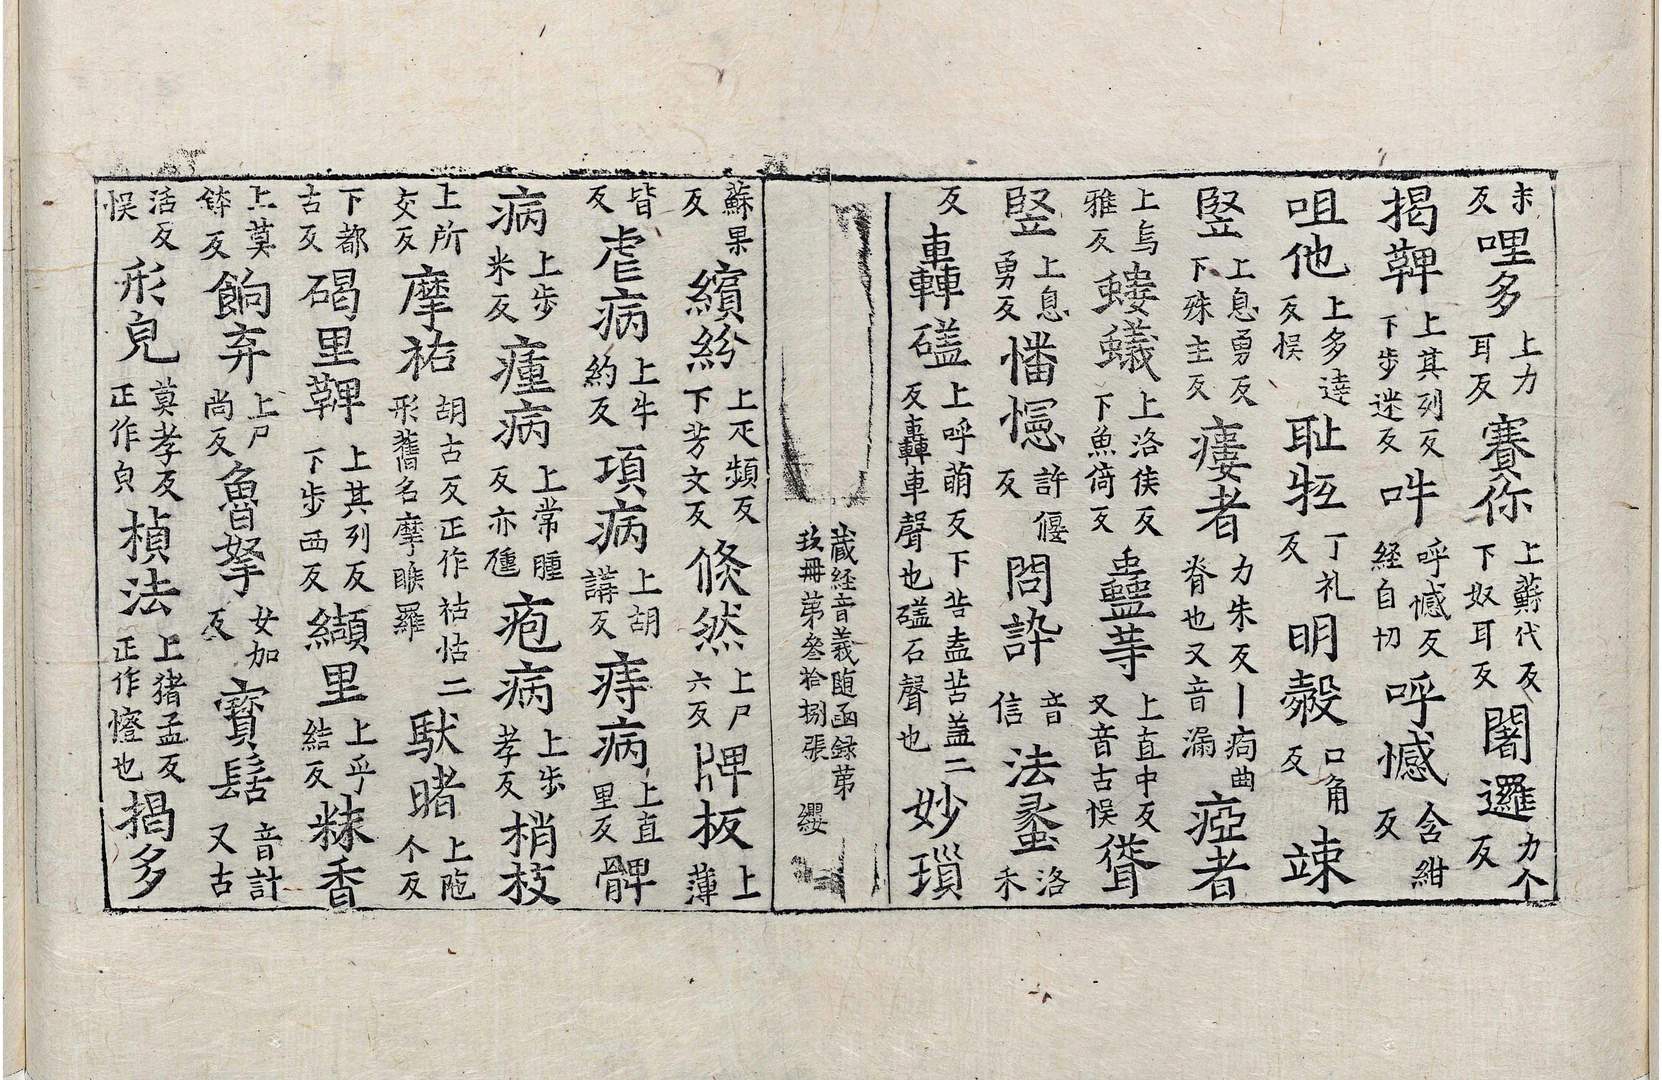 未反哩多上力耳反賽你上蘇代反下奴耳反闍邏力个反
揭鞞上其列反下步迷反吽呼憾反経自切呼憾含紺反
咀他上多達反悮耻㸦丁礼反明㲉口角反竦
竪上息勇反下殊主反瘻者力朱反丨疴曲脊也又音漏瘂者
上烏雅反螻蟻上洛侯反下魚倚反蠱䓁上直中反又音古悮聳
竪上息勇反憣憶許偃反問訟音信法蠡洛禾
反轟磕上呼萌反下苦盍苦蓋二反轟車聲也磕石聲也妙瑣
藏経音義随函録第
玖冊第叄拾捌張 纓
蘇果反繽紛上疋頻反下芳文反倐然上尸六反牌板上薄
皆反虐病上牛約反項病上胡講反痔病上直里反髀
病上步米反瘇病上常腫反亦㾽疱病上步孝反梢枝
上所交反摩祐胡古反正作祜怙二形舊名摩睺羅䭾暏上陁个反
下都古反碣里鞞上其列反下步西反纈里上乎結反粖香
上莫鉢反餉弃上尸尚反魯拏女加反寳髻音計又古
活反悮形皃莫孝反正作㒵楨法上猪孟反正作憕也揭多